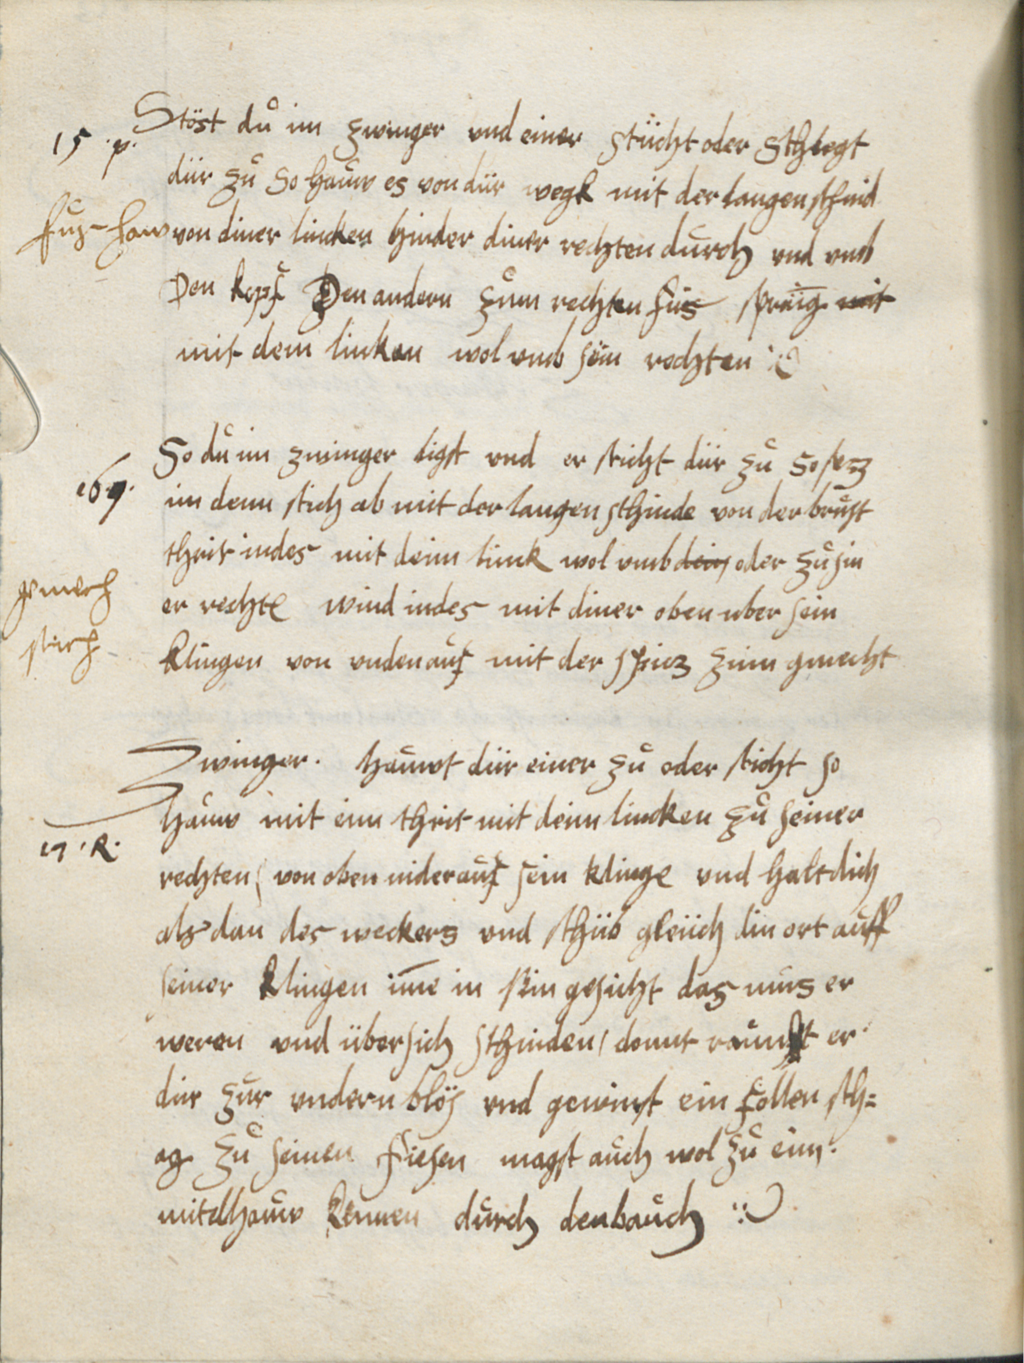 15 .p. Stöst dů im zwinger vnd einer stücht oder schlegt
dür zů so hauw es von dür wegk mit der langen schnid
fuz-haw von diner lincken hinder diner rechten durch vnd vmb
Den kopf Den andern zům rechten fůs spring mit
mit dem lincken wol vmb sein rechten
16 q. So dů im zwinger ligst vnd er sticht dür zů so setz
im denn stich ab mit der langen schinde von der brust
thrit indes mit deim linck wol vmb dein oder zů sin
gemech er rechte wind indes mit diner oben uber sein
stich klingen von vnden auf mit der spicz zum gmecht
Zwinger. hauwt dür einer zů oder sticht so
hauw mit eim thrit mit deim lincken zů seiner
17 .R. rechten / von oben nider auf sein klinge vnd halt dich
als dan des weckers vnd schüb gleüch din ort auff
seiner klingen ime in sin gesicht das mus er
weren vnd übersich schinden / domit raumst er
dir zur vndern blös vnd gewinst ein follen sch=
ag zů seinen fiesen magst auch wol zů eim
mitelhauw kumen durch den bauch